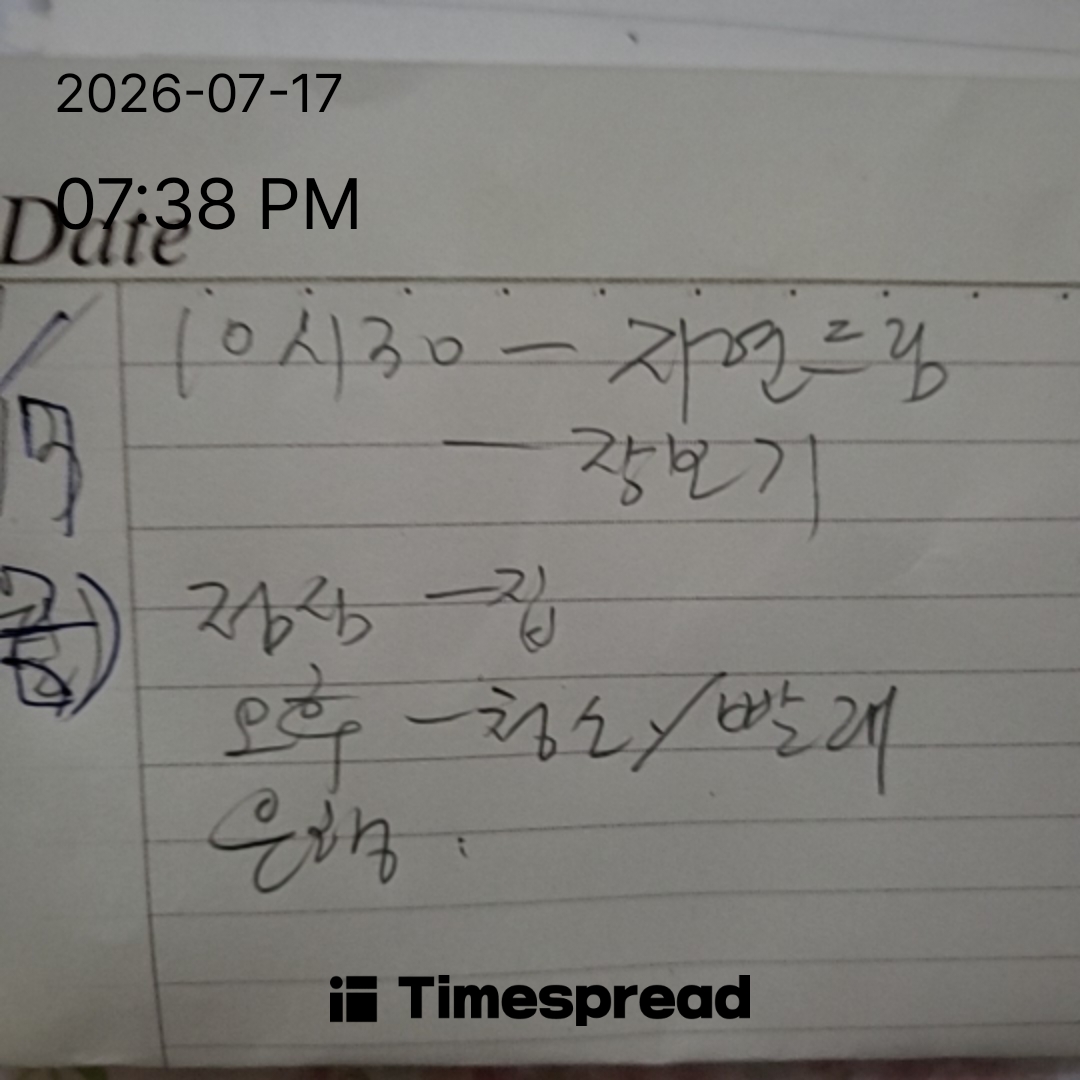 2026-07-17
07:38 PM
Date
10시30 - 자연드림
- 장보기
17
금)
점심 - 집
오후 - 청소/빨래
은행 :
Timespread